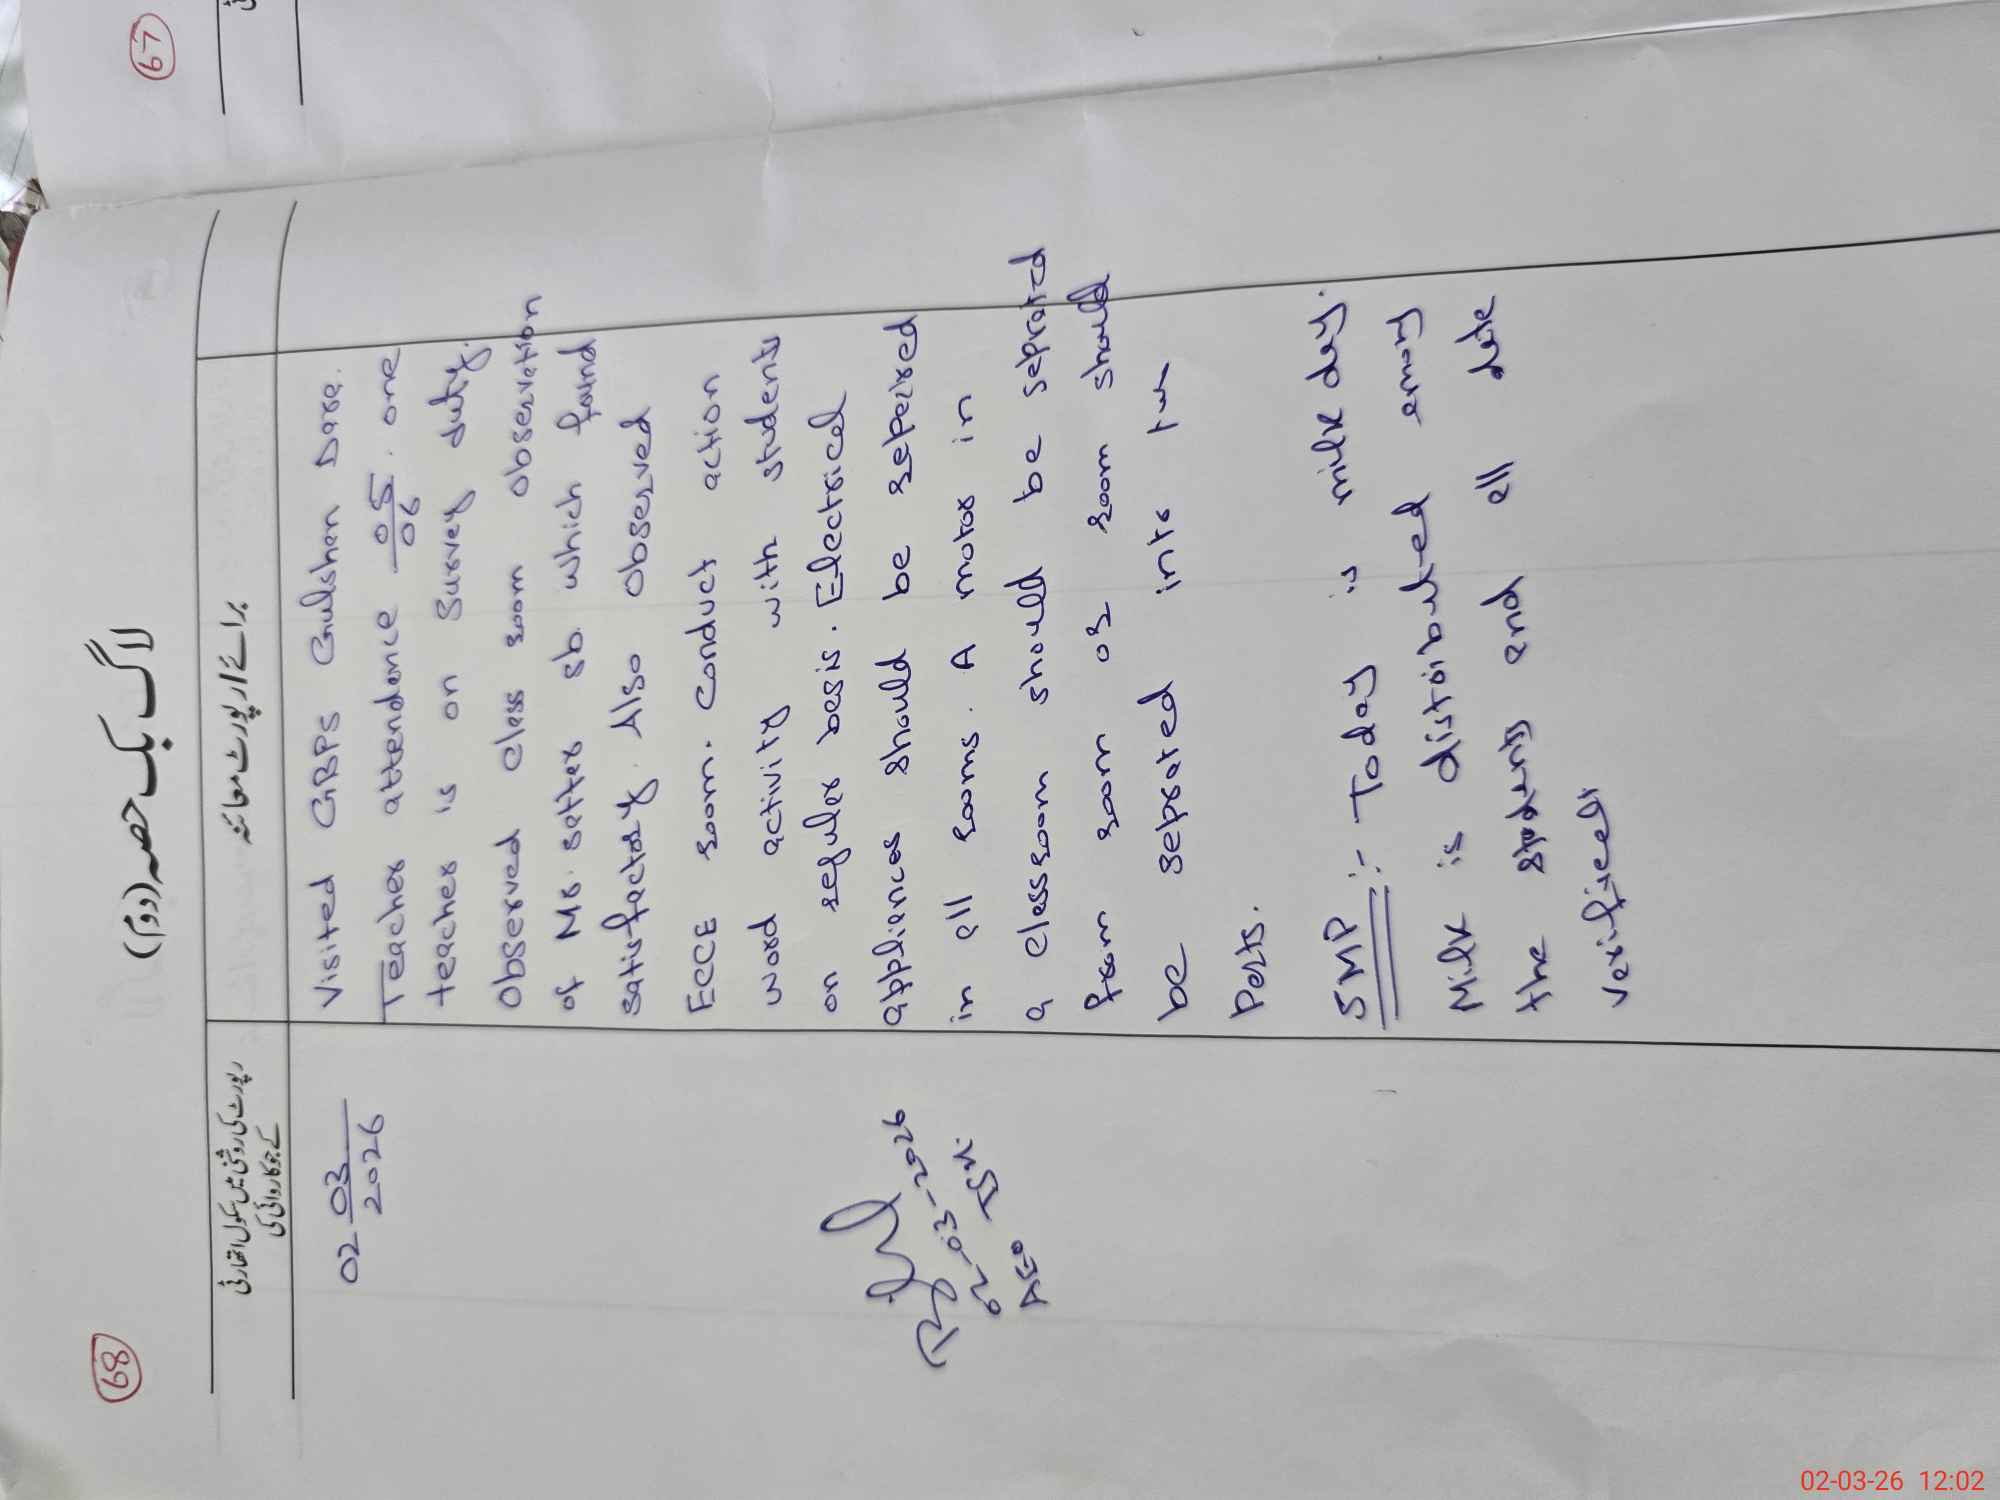 67
68
لاگ بک حصہ (دوم)
رپورٹ کی روشنی میں سکول اتھارٹی
کے جو کاروائی کی
برائے / رپورٹ معائنہ
02 03/2026
Visited GBPS Gulshan Dara.
Teacher attendance 05/06. one
teacher is on survey duty.
Observed class room observation
of Mr. Sattar sb. which found
satisfactory. Also observed
ECCE room. Conduct action
word activity with students
on regular basis. Electrical
appliances should be repaired
in all rooms. A motor in
a classroom should be seprated
from room or room should
be seprated into two
Parts.
SMP :- Today is milk day.
Milk is distributed among
the students and all date
verified
02-03-2026
AEO
02-03-26 12:02